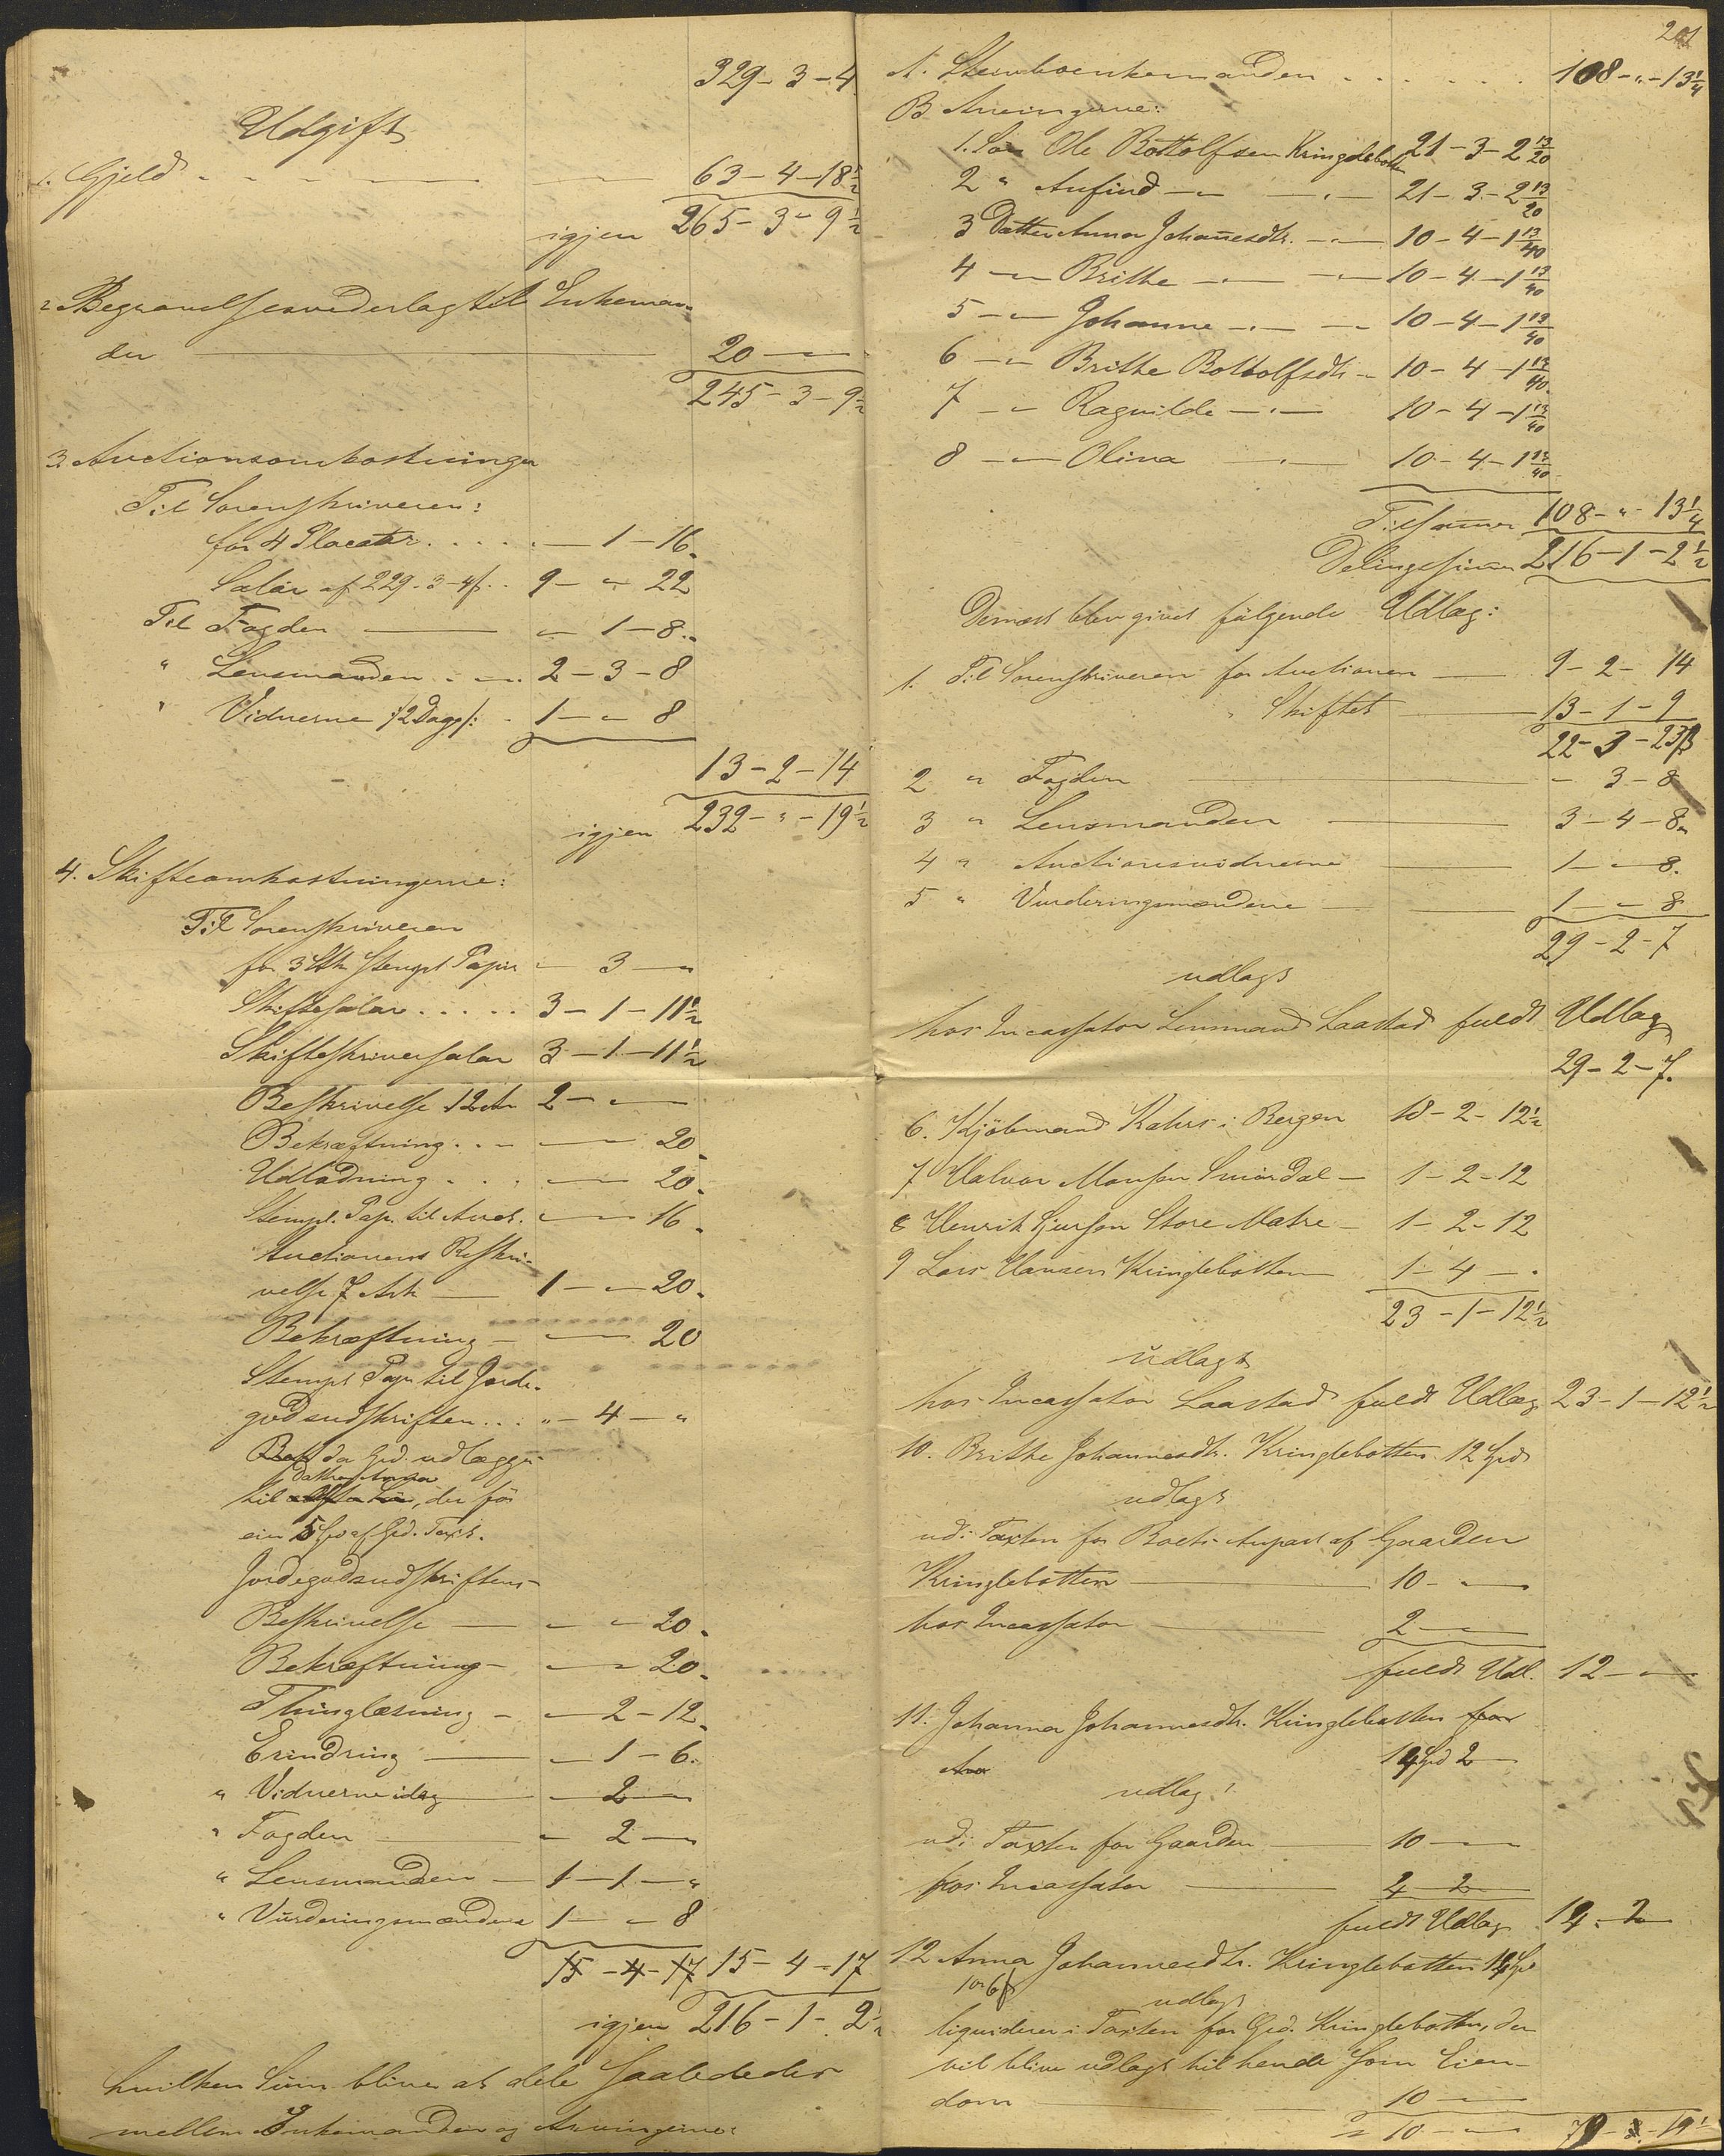 329 - 3 - 4
Udgift
1. Gjeld - - - 63 - 4 - 18½
igjen 265 - 3 - 9½
2 Begravelsesvederlag til Enkeman-
den 20 - -
245 - 3 - 9½
3. Auctionsomkostninger
Til Sorenskriveren:
for 4 Placater . . . . - 1 - 16
Salær af 229 - 3 - 4 ß. . 9 - " 22
Til Fogden - 1 - 8
" Lensmanden . - 2 - 3 - 8
" Vidnerne /: 2 Dage /: - 1 - - 8
13 - 2 - 14
igjen 232 - " - 19½
4. Skifteomkostningerne:
Til Sorenskriveren
for 3 Stk. stempl. Papir - 3 -
Skiftesalær . . . . . 3 - 1 - 11½
Skifteskriversalær 3 - 1 - 11½
Beskrivelse 12 Ark 2 - -
Bekræftning . . - - 20
Udladning . . . - - 20
Stempl. Pap. til Auct. - - 16
Auctionens Beskri-
velse 7 Ark - 1 - - 20
Bekræftning - - - 20
Stempl. Pap. til Jorde-
godsudskriften . . . " - 4 - "
da Grd. udlægges
Datter Anna
til, der før
eier af Grd. Taxt.
Jordegodsudskriftens-
Beskrivelse - - - 20
Bekræftning - - - 20
Thinglæsning - - 2 - 12
Erindring - 1 - 6
" Vidnerne idag - 2 -
" Fogden - 2 -
" Lensmanden - 1 - 1 - "
" Vurderingsmændene 1 - - 8
15 - 4 - 17 15 - 4 - 17
igjen 216 - 1 - 2½
hvilken Sum bliver at dele saaledes
mellem Enkemanden og Arvingerne:
201
A. Stervboenkemanden . . . . . . 108 - " - 13¼
B Arvingerne:
1. Søn Ole Bottolfsen Kringlebotten 21 - 3 - 2 13/20
2 " Anfind - - 21 - 3 - 2 13/20
3 Datter Anna Johannesdtr. - 10 - 4 - 1 13/40
4 - Brithe - - 10 - 4 - 1 13/40
5 - Johanne - - 10 - 4 - 1 13/40
6 - Brithe Bottolfsdtr - 10 - 4 - 1 13/40
7 - Ragnilde - 10 - 4 - 1 13/40
8 - Olina - 10 - 4 - 1 13/40
Tilsammen 108 - " - 13¼
Delingssum 216 - 1 - 2½
Dernæst blev givet følgende Udlæg:
1. Til Sorenskriveren for Auctionen 9 - 2 - 14
" Skiftet 13 - 1 - 9
22 - 3 - 23 ß
2 " Fogden - 3 - 8
3 " Lensmanden 3 - 4 - 8
4 " Auctionsvidnerne 1 - - 8
5 " Vurderingsmændene 1 - - 8
29 - 2 - 7
udlagt
hos Incassator Lensmand Laastad fuldt Udlæg
29 - 2 - 7
6. Kjøbmand Rahrs i Bergen 18 - 2 - 12½
7 Halvor Monsen Smørdal - 1 - 2 - 12
8 Henrik Sjursen Store Matre - 1 - 2 - 12
9 Lars Hansen Kringlebotten 1 - 4 -
23 - 1 - 12½
udlagt
hos Incassator Laastad fuldt Udlæg 23 - 1 - 12½
10. Brithe Johannesdtr. Kringlebotten 12 Spd
udlagt
udi Taxten for Boets Anpart af Gaarden
Kringlebotten 10 - -
hos Incassator 2 -
fuldt Udl. 12 - -
11. Johanna Johannesdtr. Kringlebotten for
14 Spd 2
udlagt
udi Taxten for Gaarden 10 - -
hos Incassator 4 2
fuldt Udlæg 14 - 2
12 Anna Johannesdtr. Kringlebotten 14 Spd
udlagt
liquiderer i Taxten for Grd. Kringlebotten, der
vil blive udlagt til hende som Eien-
dom 10 -
10 - - 79 - - 19½